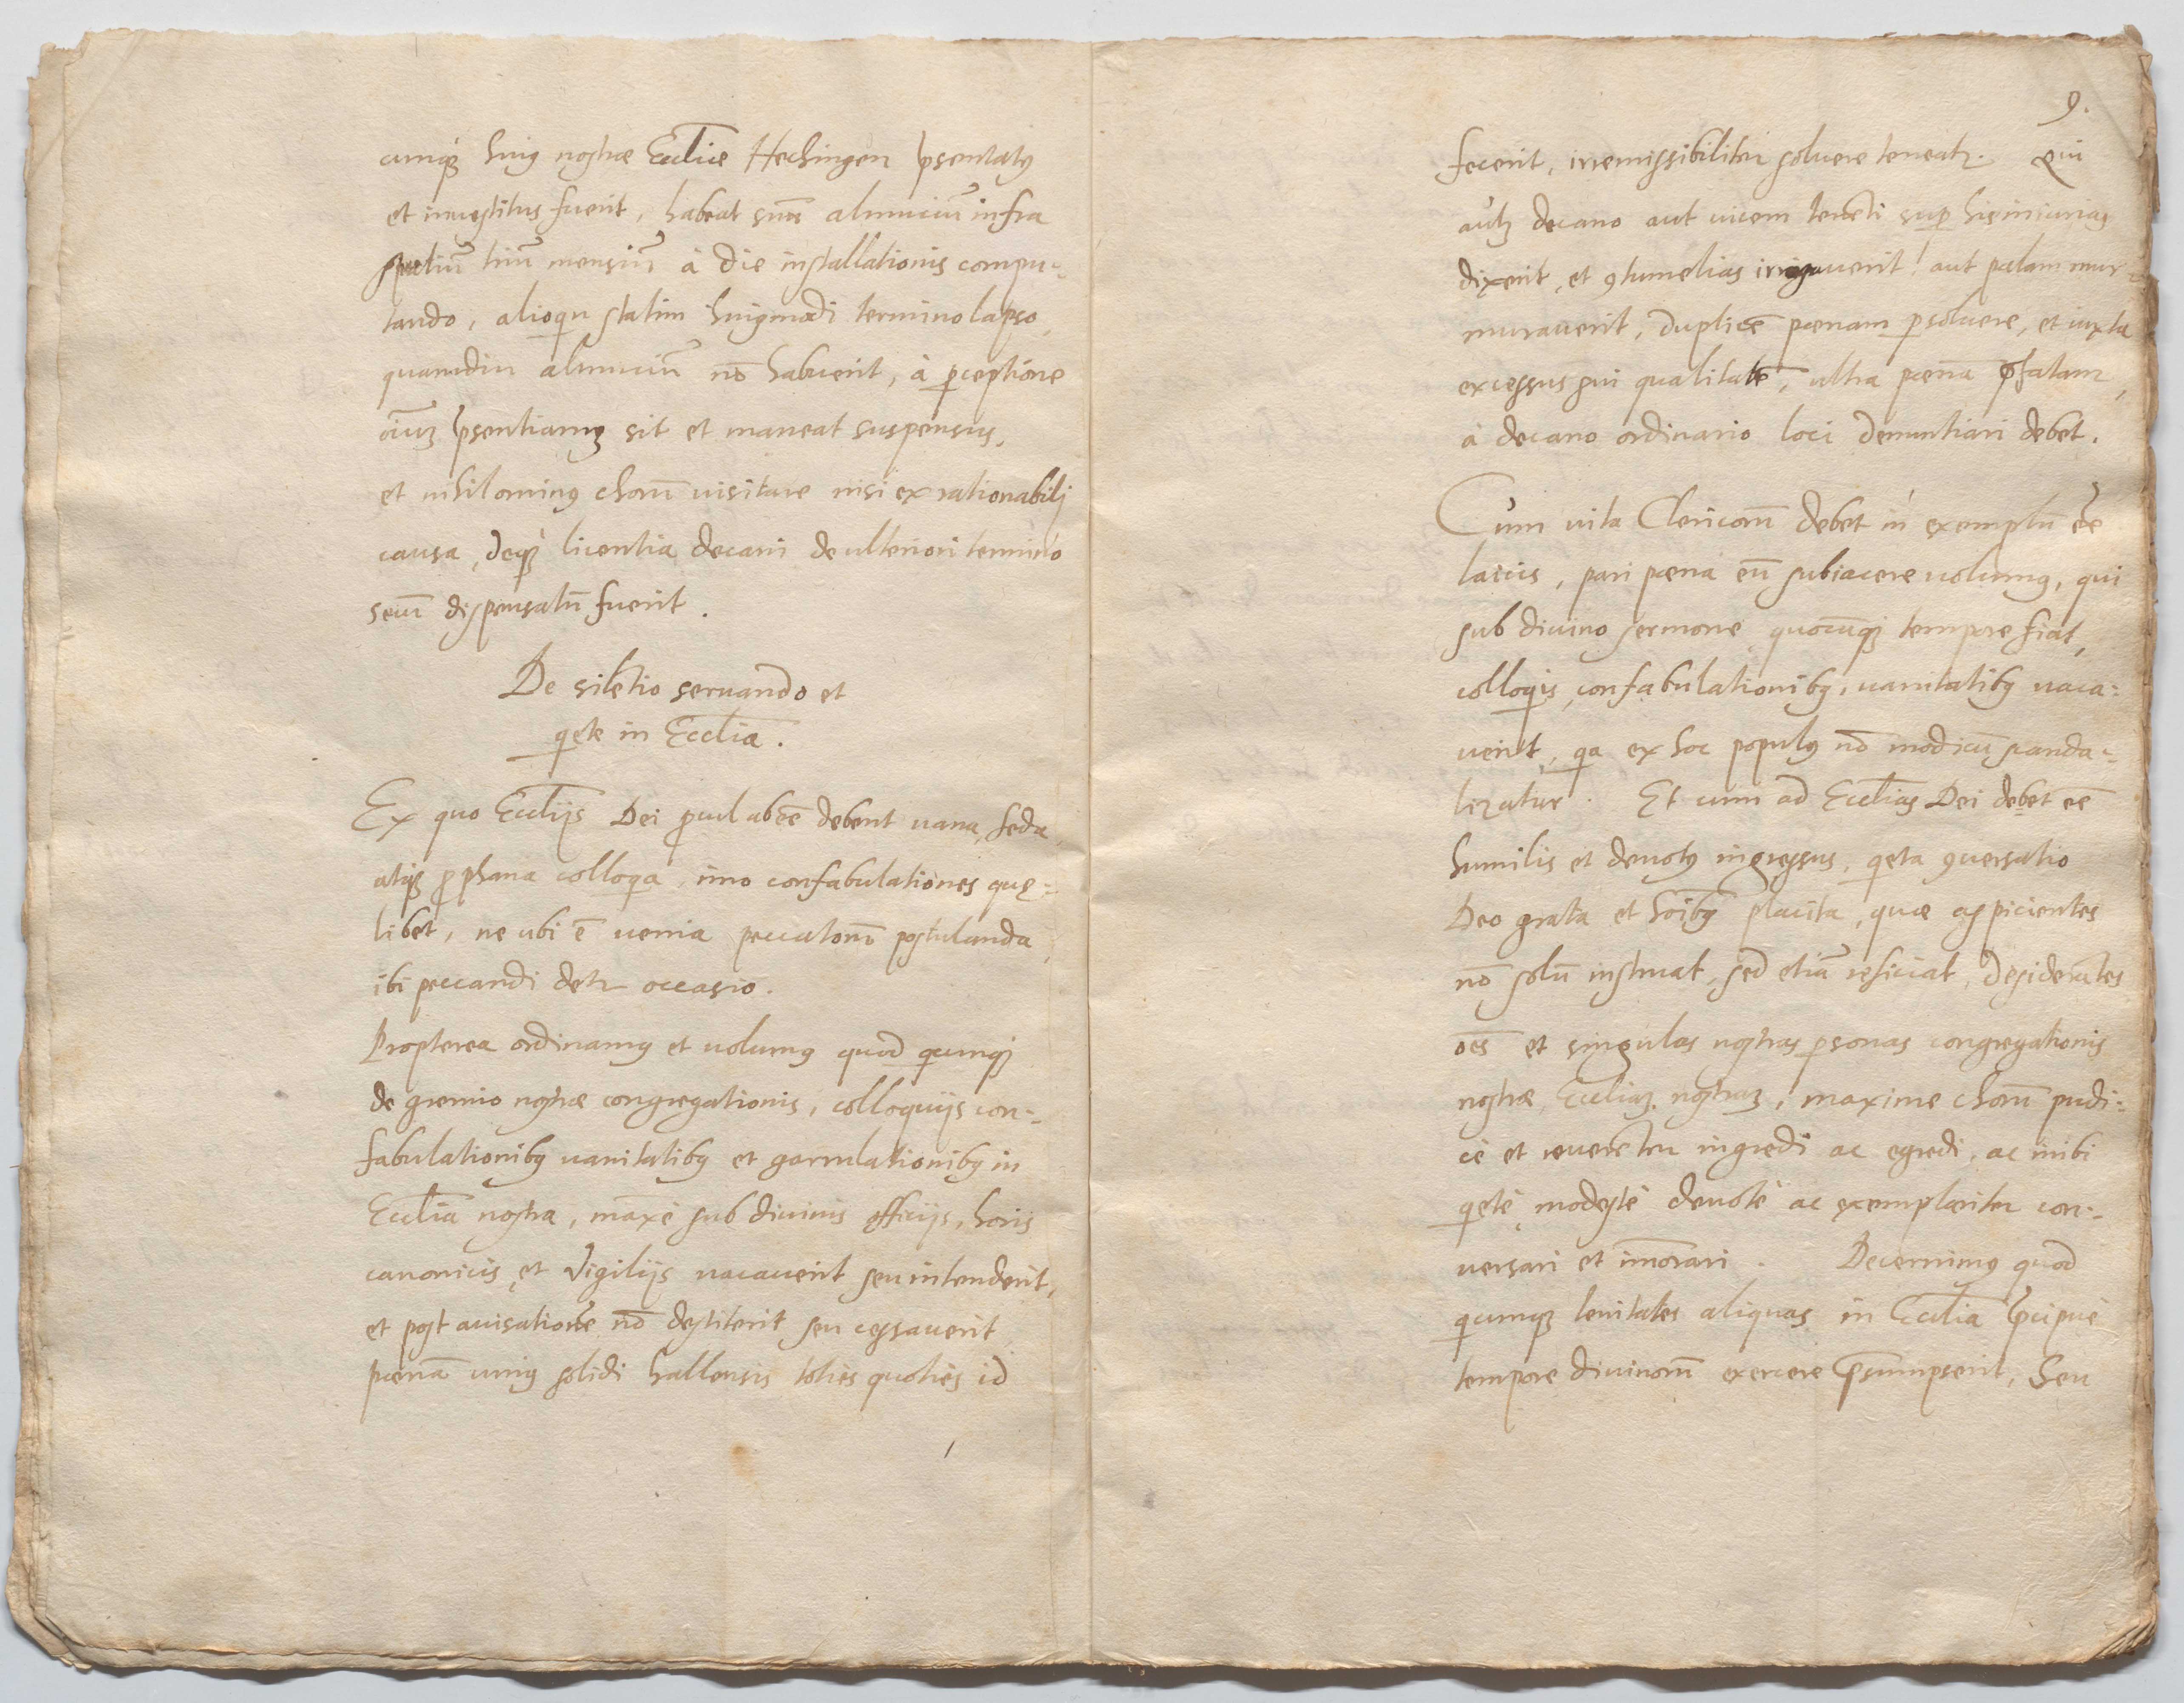 cunq₃ huiꝰ nostræ Eccliæ Hechingen p̄sentatꝰ
et inuestitus fuerit, habeat suū almuciū infra
spatiū triū mensiū à die installationis compu-
tando, alioqn statim huiꝰmodi termino lapso,
quamdiu almuciū nō habuerit, à ꝑceptione
oīuꝫ p̄sentiarꝫ sit et maneat suspensus,
et nihilominꝰ chorū uisitare nisi ex rationabili
causa, deq₃ licentia decani de ulteriori termino
secū dispensatū fuerit.
De silētio seruando et
qete in Ecclīa.
Ex quo Ecclijs Dei procul abēe debent uana, feda
atq₃ prophana colloqa, imo confabulationes quę-
libet, ne ubi ē uenia peccatorū postulanda,
ibi peccandi detr occasio.
Propterea ordinamꝰ et uolumꝰ quod qcunq₃
de gremio nostræ congregationis, colloquijs con-
fabulationibꝰ uanitatibꝰ et garrulationibꝰ in
Ecclīa nostra, maxē sub diuinis officijs, horis
canonicis et Vigilijs uacauerit seu intenderit,
et post auisationē nō destiterit seu cessauerit
pœnā uniꝰ solidi hallensis toties quoties id
9.
fecerit, irremissibiliter soluere teneatr. Qui
autꝫ decano aut uicem tenēti suꝑ his iniurias
dixerit, et ꝯtumelias irrogauerit! aut palam mur-
murauerit, duplicē pœnam ꝑsoluere, et iuxta
excessus sui qualitatē, ultra pœnā p̄fatam,
à decano ordinario loci denuntiari debet.
Cum uita Clericorū debet in exemplū ēe
laicis, pari pœna eū subiacere uolumꝰ, qui
sub diuino sermone quocūq₃ tempore fiat,
colloqis, confabulationibꝰ, uanitatibꝰ uaca-
uerit, qa ex hoc populꝰ nō modicū scanda-
lizatur. Et cum ad Ecclīas Dei debet eē
humilis et deuotꝰ ingressus, qeta ꝯuersatio
Deo grata et hoībꝰ placita, quæ aspicientes
nō solū instruat, sed etiā reficiat, Desiderātes
oēs et singulas nostras ꝑsonas congregationis
nostræ, Eccliaꝫ nostraꝫ, maxime chorū pudi-
cè et reuerēter ingredi ac egredi, ac inibi
qetè, modestè deuotè ac exemplariter con-
uersari et im̄orari. Decernimꝰ quod
qcumq₃ leuitates aliquas in Ecclīa p̄cipuè
tempore diuinorū exercere p̄sumpserit, Seu